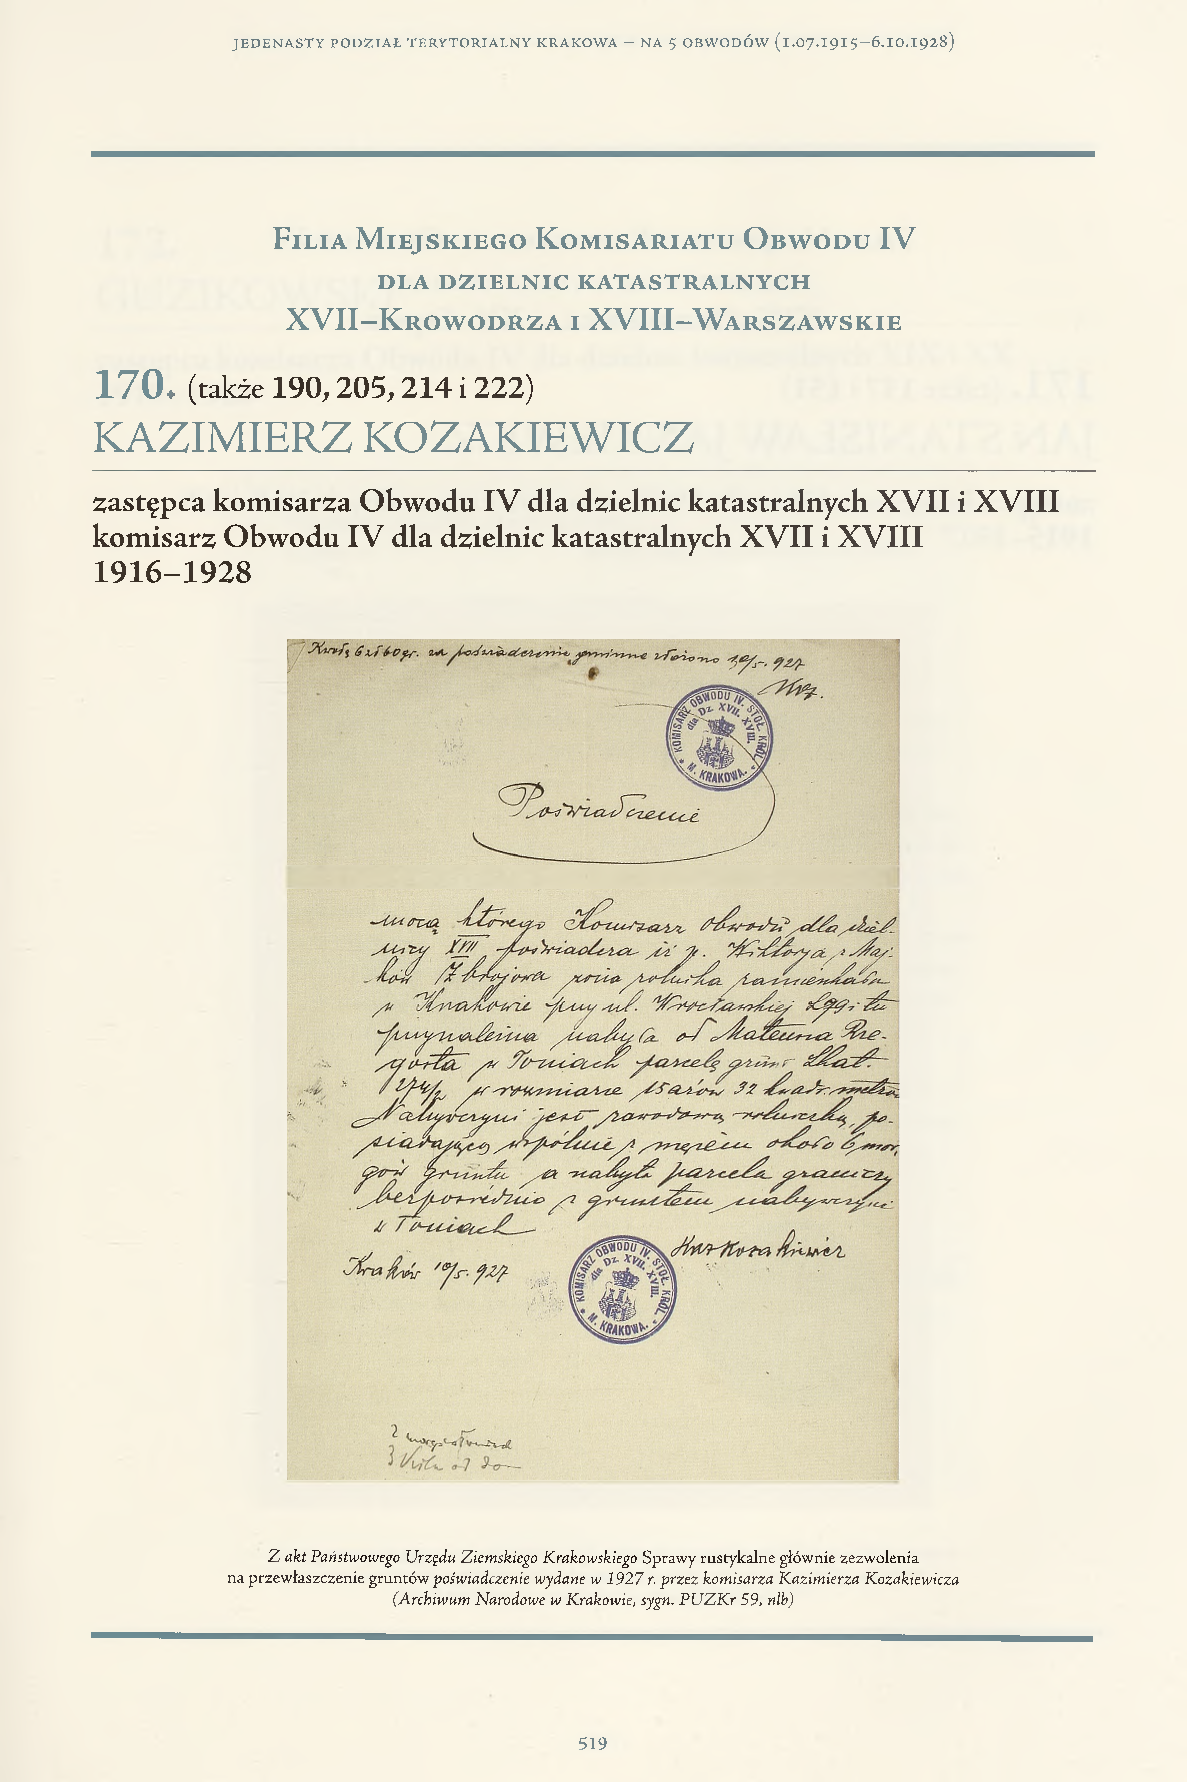 JEDENASTY PODZIAŁ TERYTORIALNY KRAKOWA – NA 5 OBWODÓW (1.07.1915–6.10.1928)
Filia Miejskiego Komisariatu Obwodu IV
dla dzielnic katastralnych
XVII–Krowodrza i XVIII–Warszawskie
170. (także 190, 205, 214 i 222)
KAZIMIERZ KOZAKIEWICZ
zastępca komisarza Obwodu IV dla dzielnic katastralnych XVII i XVIII
komisarz Obwodu IV dla dzielnic katastralnych XVII i XVIII
1916–1928
Kwotę 6 zł 60 gr. za poświadczenie gminne złożono 10/5. 927
KOMISARZ OBWODU IV. STOŁ. KRÓL. M. KRAKOWA.
dla Dz. XVII. XVIII.
Poświadczenie
mocą którego Komisarz obwodu dla dziel-
nicy XVII poświadcza iż p. Wiktorya z Maj-
ków Zbrojowa żona rolnika zamieszkała
w Krakowie przy ul. Wrocławskiej
przynależna nabyła od Mateusza Rze-
w Toniach parcelę grunt Lkat.
w rozmiarze 15 arów 32 kwadr. metrów
Nabywczyni jest zawodową rolniczką, po-
siadającą wspólnie z mężem około 6 mor-
gów gruntu a nabyta parcela graniczy
bezpośrednio z gruntem nabywczyni
w Toniach
Kaz Kozakiewicz
Kraków 10/5. 927
KOMISARZ OBWODU IV. STOŁ. KRÓL. M. KRAKOWA.
dla Dz. XVII. XVIII.
2
3
Z akt Państwowego Urzędu Ziemskiego Krakowskiego Sprawy rustykalne głównie zezwolenia
na przewłaszczenie gruntów poświadczenie wydane w 1927 r. przez komisarza Kazimierza Kozakiewicza
(Archiwum Narodowe w Krakowie, sygn. PUZKr 59, nlb)
519